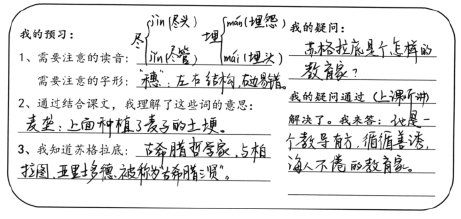 我的预习：
尽 jìn(尽头) 埋 mán(埋怨)
jǐn(尽管) mái(埋头)
1、需要注意的读音：
需要注意的字形："穗"：左右结构，右边易错。
2、通过结合课文，我理解了这些词的意思：
麦垄：上面种植了麦子的土埂。
3、我知道苏格拉底：古希腊哲学家，与柏
拉图，亚里士多德，被称为"古希腊三贤"。
我的疑问：
苏格拉底是个怎样的
教育家？
我的疑问通过（上课听讲）
解决了。我来答：他是一
个教导有方，循循善诱，
诲人不倦的教育家。